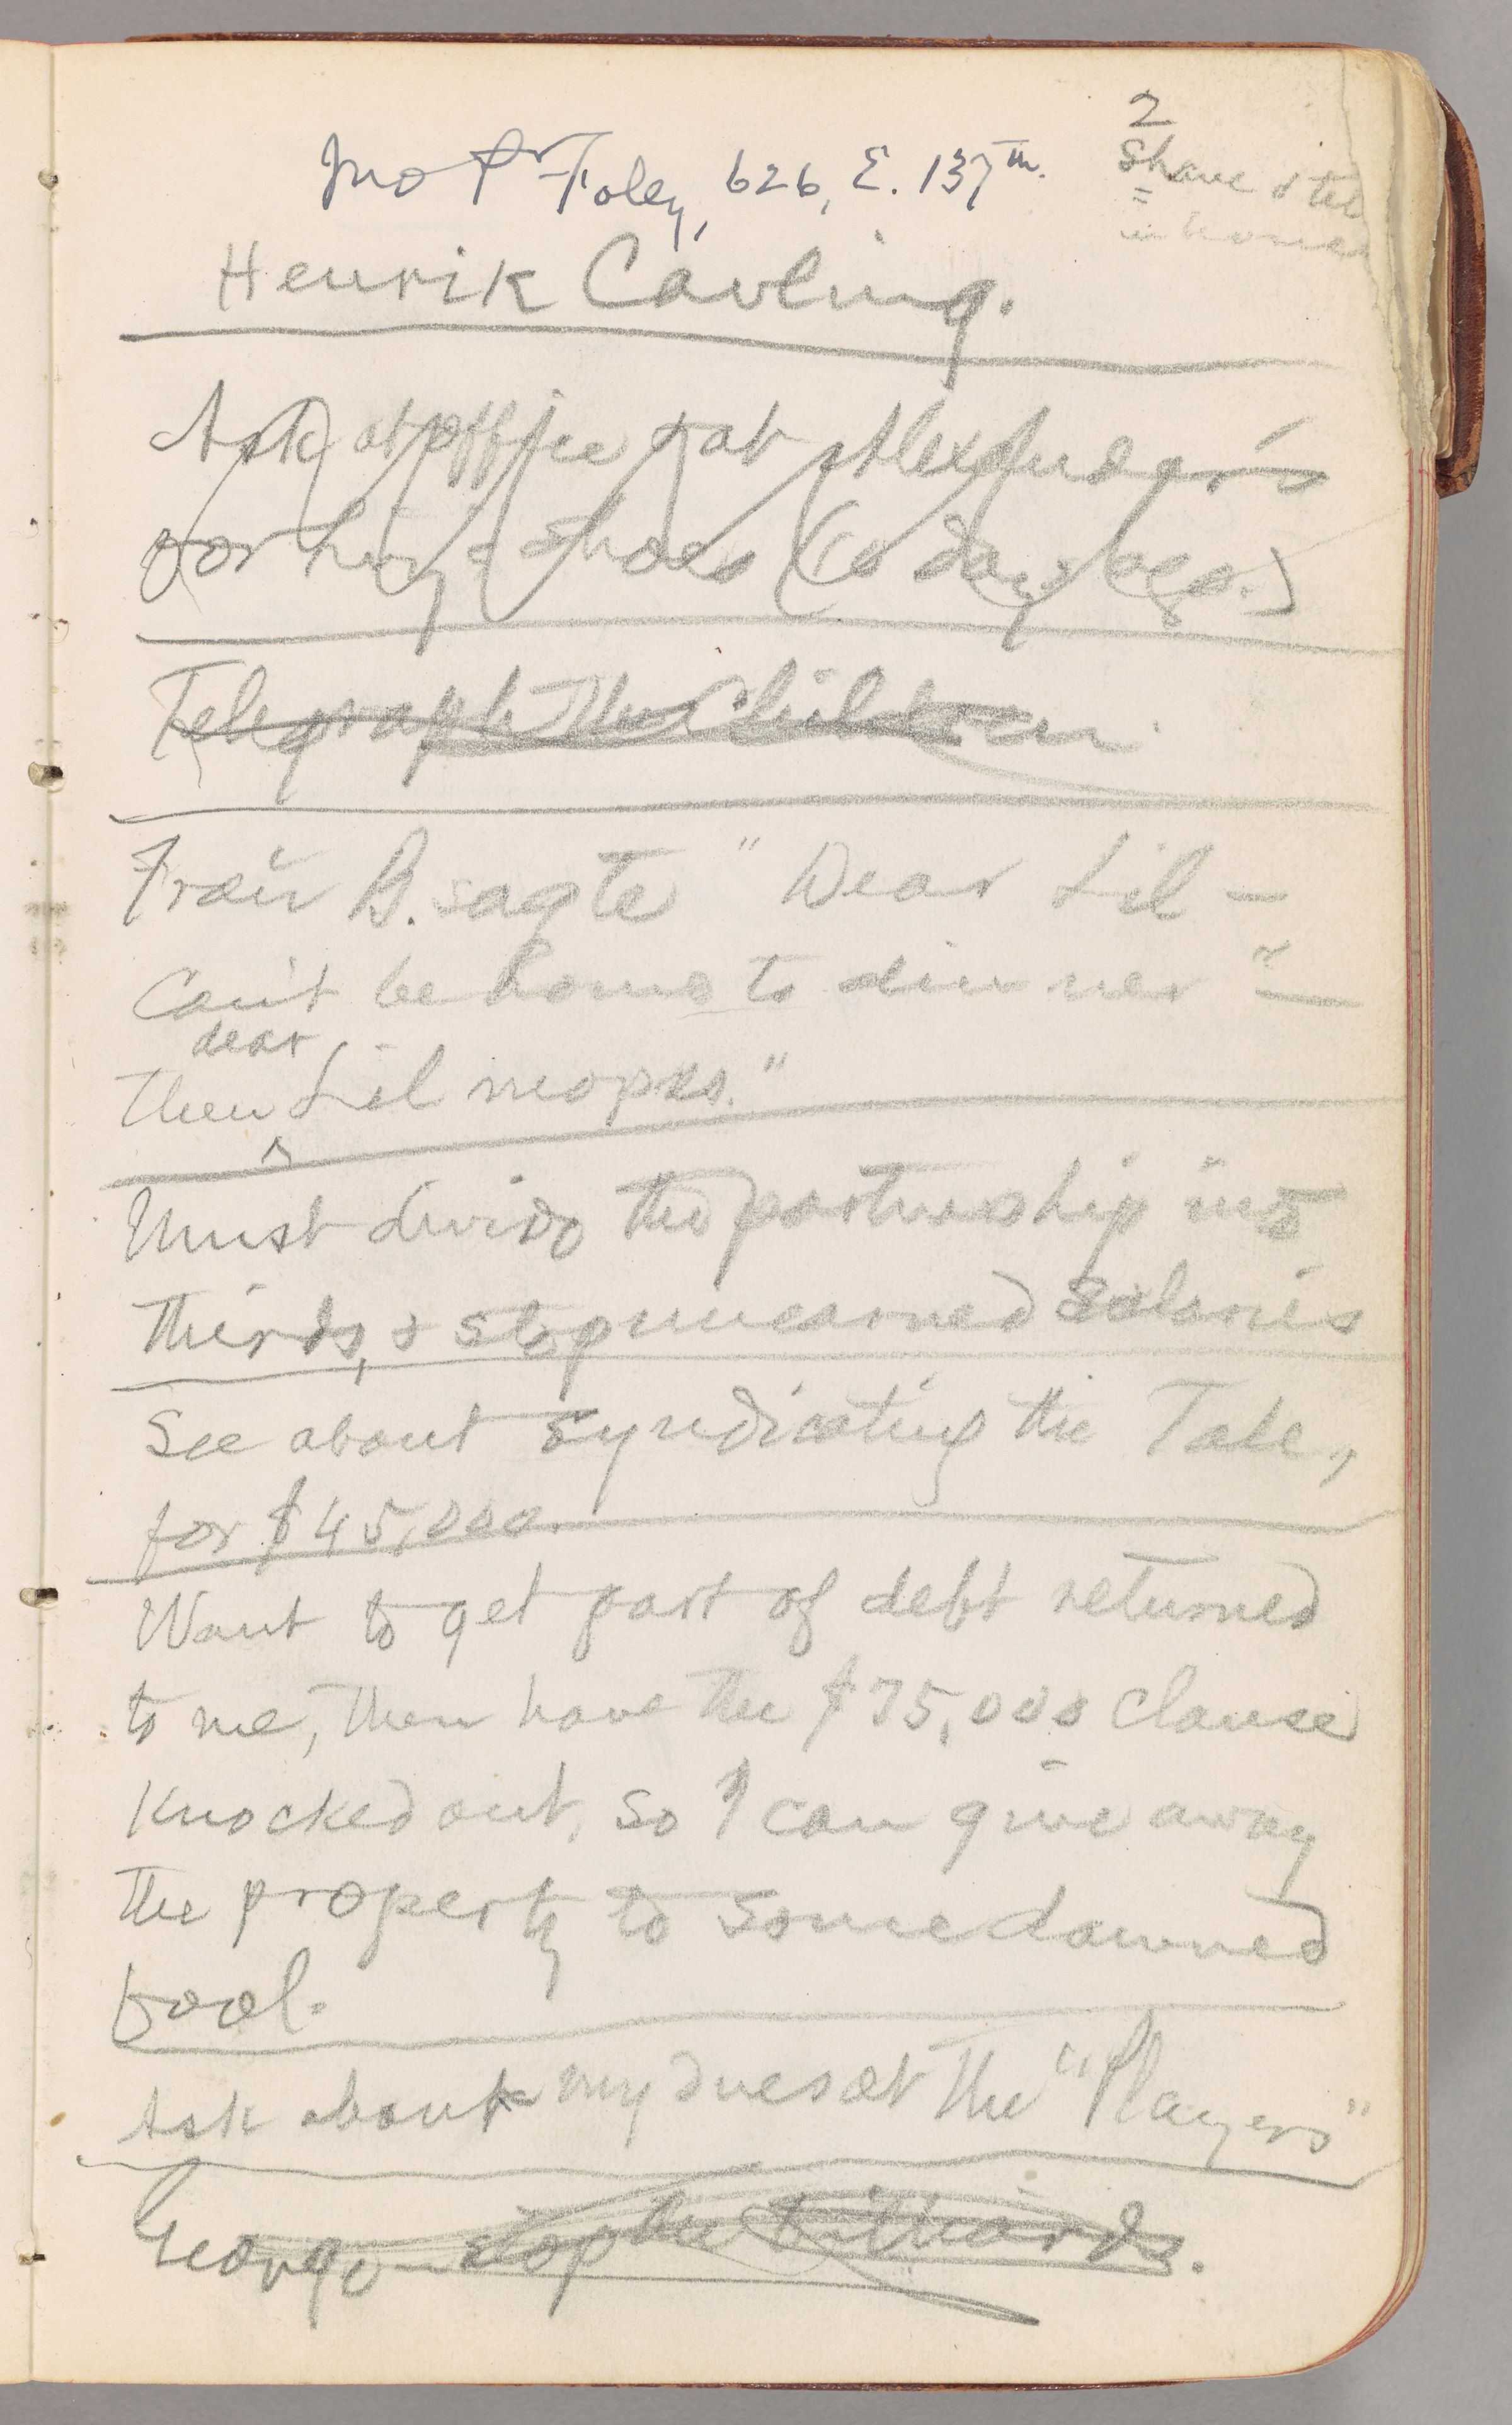 2
Jno P. Foley, 626, E. 137th.
Shave
Henrik Cavling.
Ask at office & at Alexander's
for hing-shoes (10 days ago.)
Telegraph the children.
Frau B. sagte "Dear Lil —
Can't be home to dinner" —
dear
Then Lil mopes."
Must divide the partnership into
thirds, & stop unearned salaries
See about syndicating the Tale,
for $45,000.
Want to get part of debt returned
to me, then have the $75,000 clause
knocked out, so I can give away
the property to some damned
fool.
Ask about my dues at the "Players"
George stop the billiards.